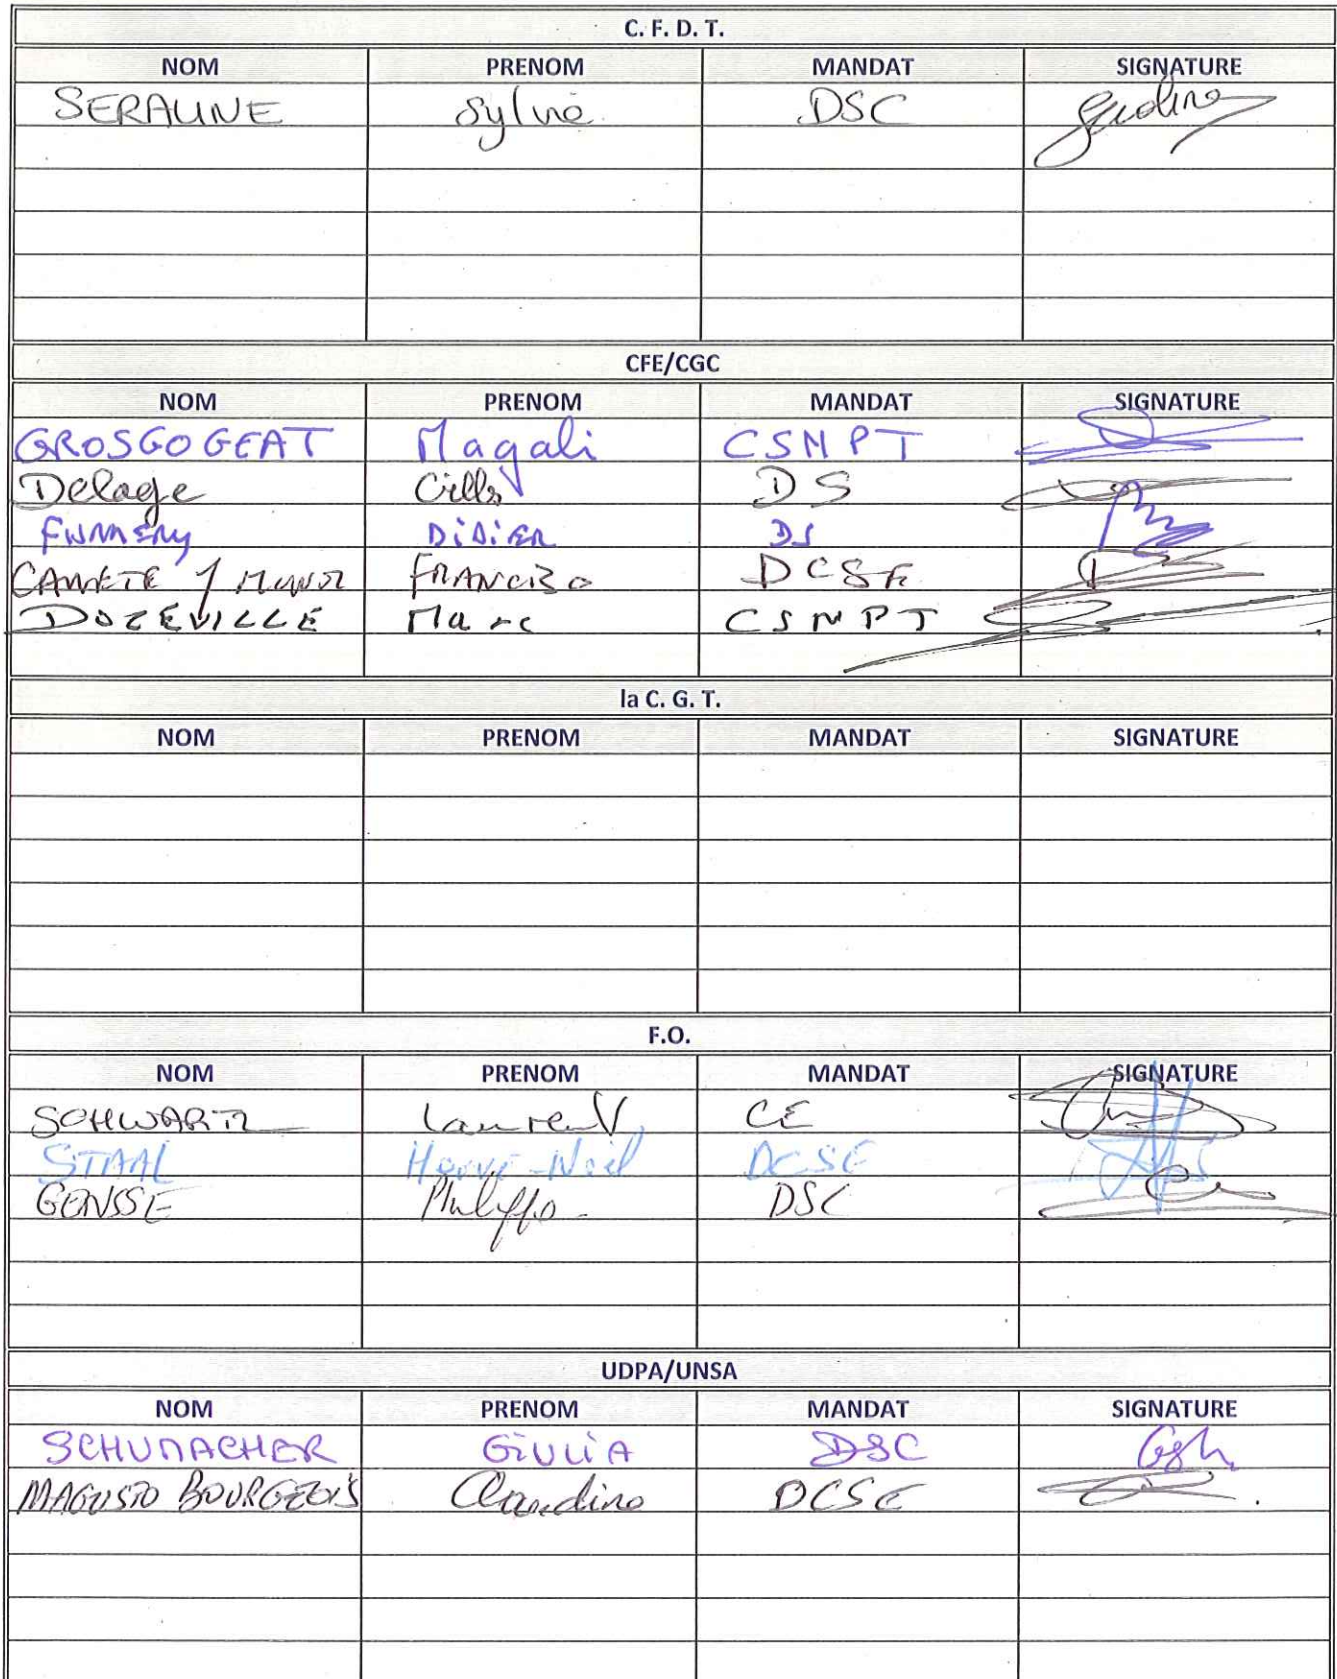 C. F. D. T.
NOM PRENOM MANDAT SIGNATURE
SERALINE Sylvie DSC
CFE/CGC
NOM PRENOM MANDAT SIGNATURE
GROSGOGEAT Magali CSMPT
Delage Gilles DS
DiDiER DS
CANETE Y MUNOZ FRANCISO DCSE
DOZEVILLE Marc CSMPT
la C. G. T.
NOM PRENOM MANDAT SIGNATURE
F.O.
NOM PRENOM MANDAT SIGNATURE
SCHWARTZ Laurent CE
STAAL Hervé-Noël DCSE
GENSSE Philippe DSC
UDPA/UNSA
NOM PRENOM MANDAT SIGNATURE
SCHUMACHER GiULiA DSC
MAGUSTO BOURGEOIS Claudine DCSE